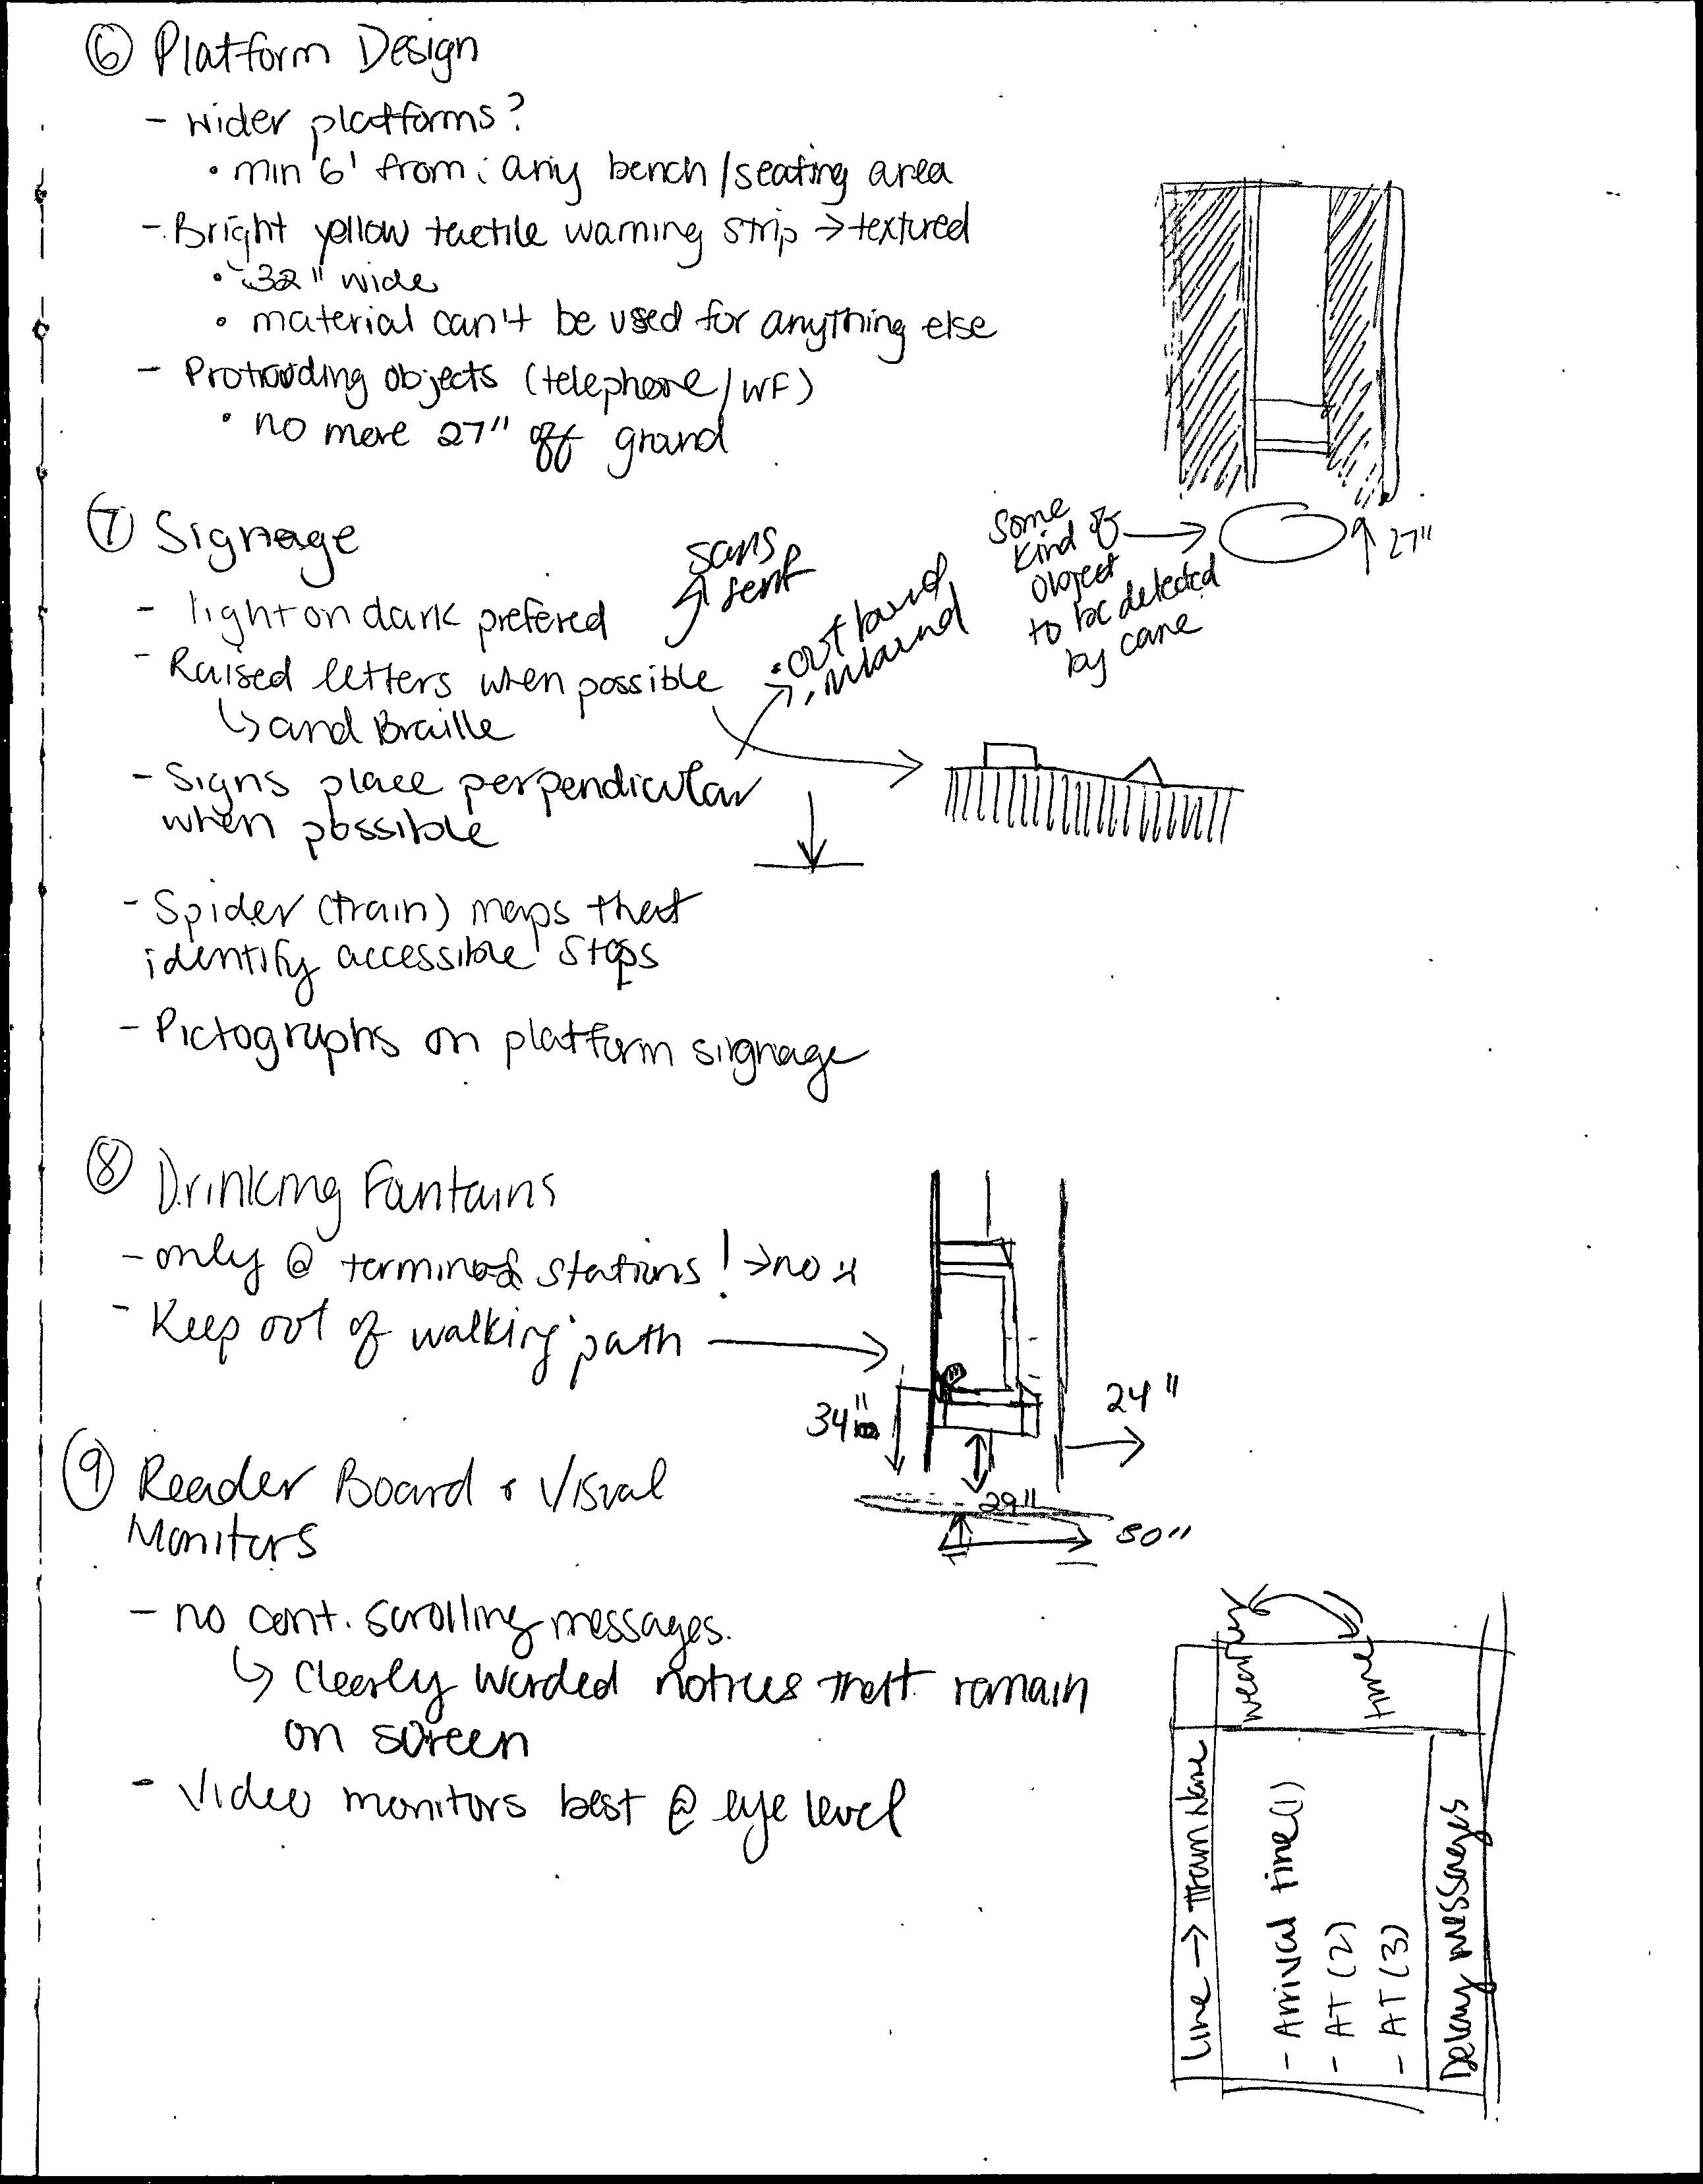 ⑥ Platform Design
- wider platforms?
• min 6' from: any bench/seating area
- Bright yellow tactile warning strip → textured
• 32" wide
• material can't be used for anything else
- Protruding objects (telephone/WF)
• no more 27" off ground
Some kind of object to be detected by cane → ↑ 27"
⑦ Signage
- light on dark prefered
sans serif
- Raised letters when possible
↳ and Braille
• outbound
• inbound
- Signs place perpendicular
when possible
- Spider (train) maps that
identify accessible stops
- Pictographs on platform signage
⑧ Drinking Fountains
- only @ terminal stations! → no
- Keep out of walking path →
34"
24"
29"
30"
⑨ Reader Board & Visual
Monitors
- no cont. scrolling messages.
↳ Clearly worded notices that remain
on screen
- Video monitors best @ eye level
Line → Train Name
time
- Arrival time (1)
- AT (2)
- AT (3)
Delay messages